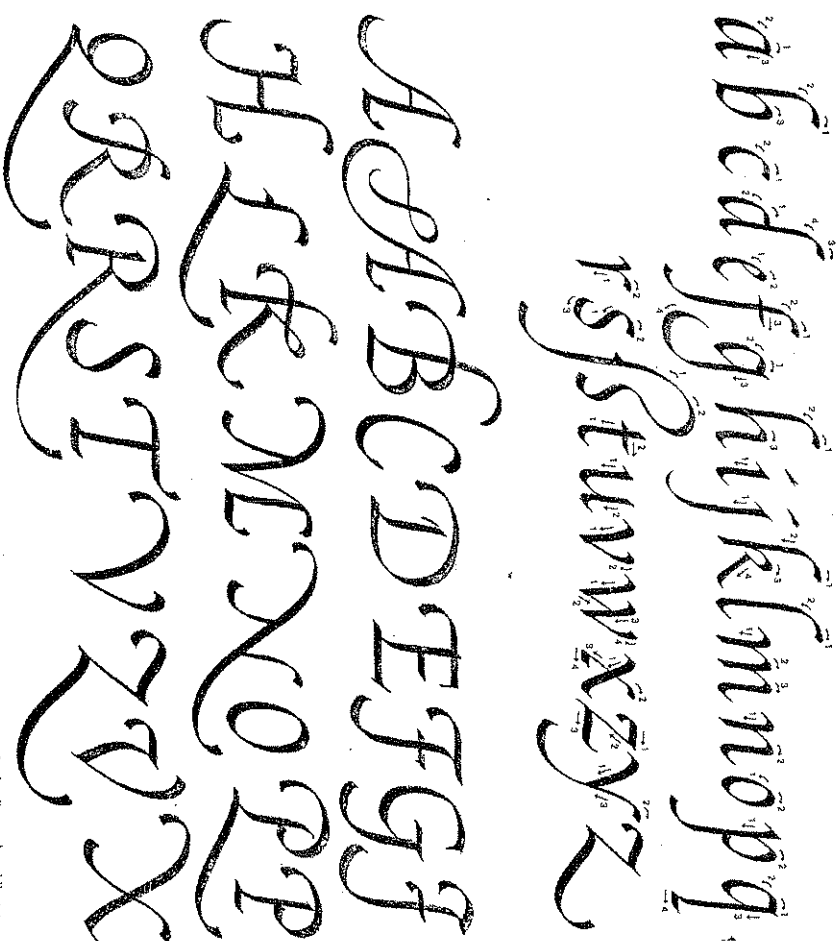 a b c d e f g h i j k l m n o p q
r s ß t u v w x z y z
A A B C D E F G J
H I K M N O P P
Q R R S T V Z V X